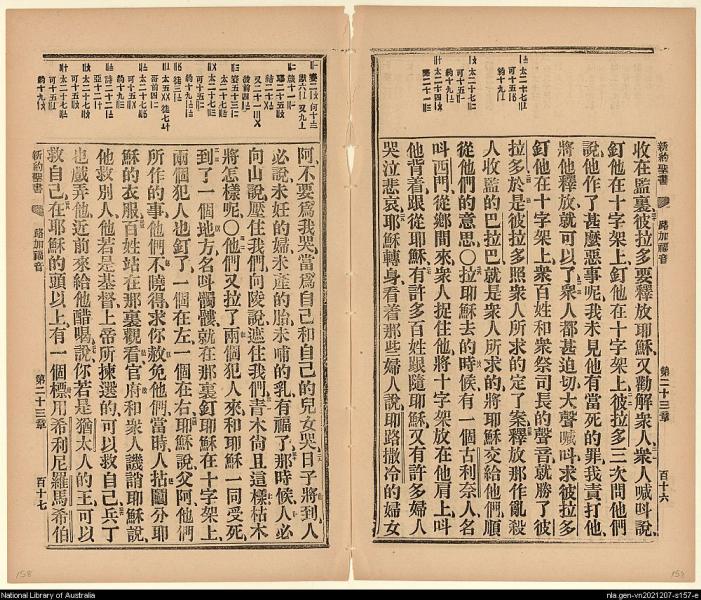 收在監裏彼拉多要釋放耶穌又勸解衆人衆人喊呌說
釘他在十字架上釘他在十字架上彼拉多三次問他們
說他作了甚麼惡事呢我未見他有當死的罪我責打他
將他釋放就可以了衆人都甚迫切大聲喊呌求彼拉多
釘他在十字架上衆百姓和衆祭司長的聲音就勝了彼
拉多於是彼拉多照衆人所求的定了案釋放那作亂殺
人收監的巴拉巴就是衆人所求的將耶穌交給他們順
從他們的意思〇拉耶穌去的時候有一個古利奈人名
呌西門從鄉間來衆人捉住他將十字架放在他肩上呌
他背着跟從耶穌有許多百姓跟隨耶穌又有許多婦人
哭泣悲哀耶穌轉身看着那些婦人說耶路撒冷的婦女
新約聖書 路加福音 第二十三章 百十六
阿不要爲我哭當爲自己和自己的兒女哭日子將到人
必說未妊的婦未產的胎未哺的乳有福了那時候人必
向山說壓住我們向陵說遮住我們靑木尙且這樣枯木
將怎樣呢〇他們又拉了兩個犯人來和耶穌一同受死
到了一個地方名呌髑髏就在那裏釘耶穌在十字架上
兩個犯人也釘了一個在左一個在右耶穌說父阿他們
所作的事他們不曉得求你赦免他們當時人拈鬮分耶
穌的衣服百姓站在那裏觀看官府和衆人譏誚耶穌說
他救別人他若是基督上帝所揀選的可以救自己兵丁
也戲弄他近前來給他醋喝說你若是猶太人的王可以
救自己在耶穌的頭以上有一個標用希利尼羅馬希伯
新約聖書 路加福音 第二十三章 百十七
158
National Library of Australia
nla.gen-vn2021207-s157-e